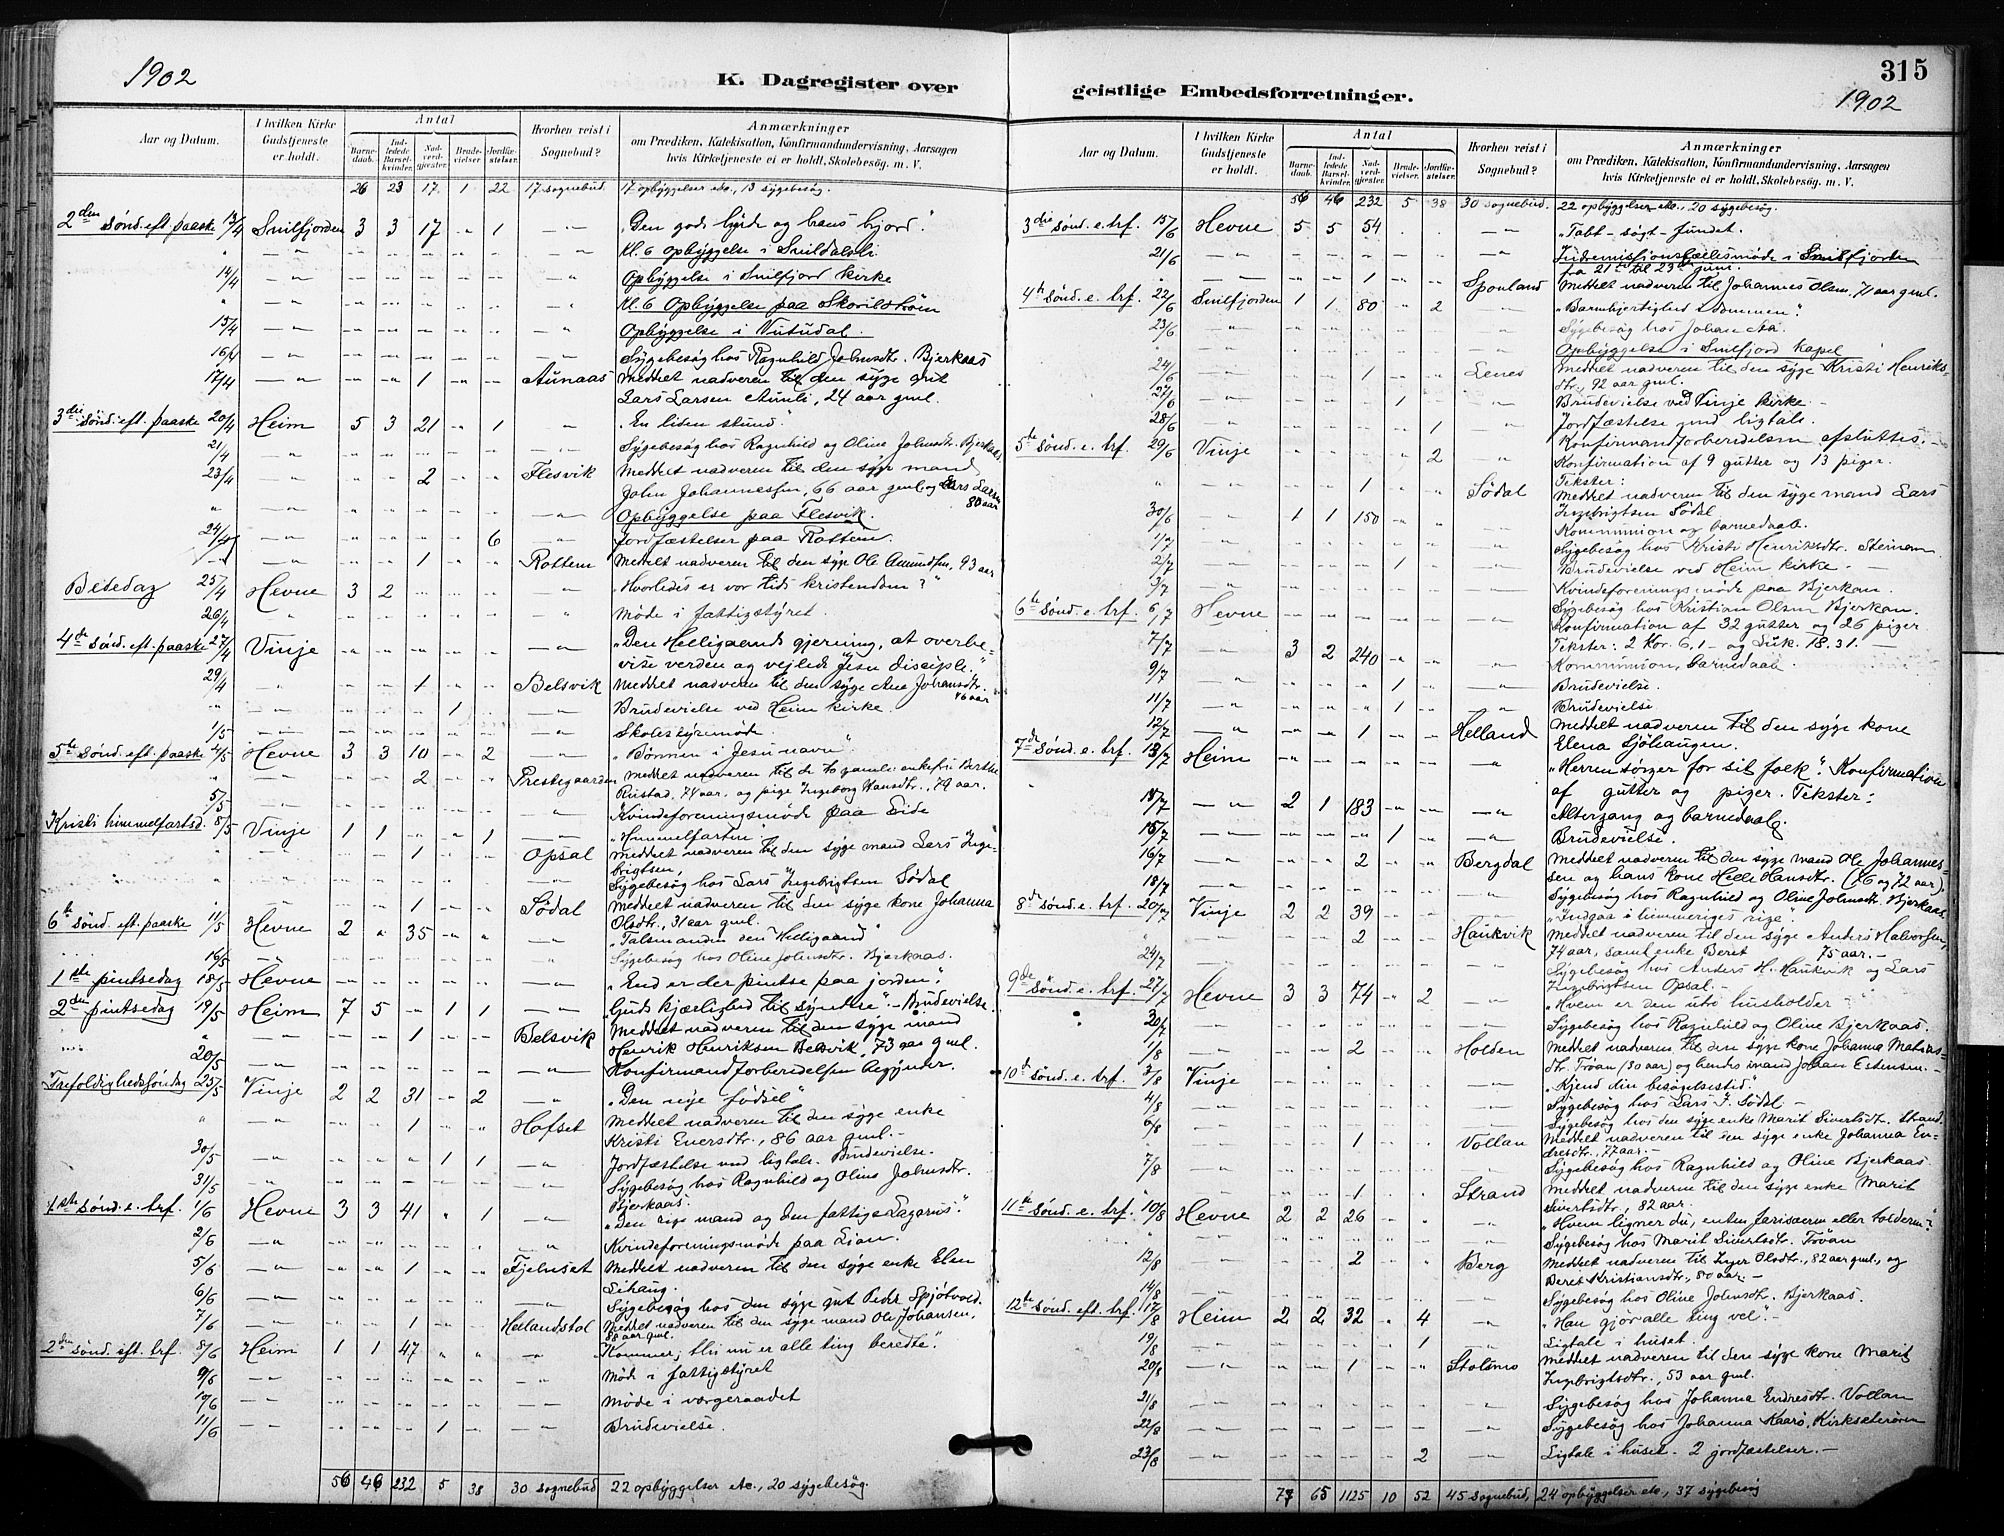 1902
K. Dagregister over
Aar og Datum.
I hvilken Kirke Gudstjeneste er holdt.
Antal
Barnedaab.
Indledede Barselkvinder.
Nadverdgjester.
Brudevielser
Jordfæstelser.
Hvorhen reist i Sognebud?
Anmærkninger
om Prædiken, Katekisation, Konfirmandundervisning, Aarsagen
hvis Kirketjeneste ei er holdt, Skolebesøg. m. V.
26 23 17 1 22 17 sognebud. 17 opbyggelser etc., 13 sygebesøg.
2den Sønd. eft. paaske 13/4 Snilfjorden 3 3 17 " 1 "Den gode hyrde og hans hjord".
Kl. 6 Opbyggelse i Snildalsli
14/4 Opbyggelse i Snilfjord kirke
Kl. 6 Opbyggelse paa
15/4 Opbyggelse i Vutudal.
16/4 Sygebesøg hos Ragnhild Johnsdtr. Bjerkaas
17/4 1 Aunaas Meddelt nadveren til den syge gut
Lars Larsen Aunli, 24 aar gml.
3die Sønd. eft. paaske 20/4 Heim 5 3 21 " 1 "En liden stund"
21/4 Sygebesøg hos Ragnhild og Oline Johnsdtr. Bjerkaas
23/4 2 Flesvik Meddelt nadveren til den syge mand
John Johannessen, 66 aar gml og Lars Larsen 80 aar
Opbyggelse paa Flesvik.
24/4 6 Jordfæstelser paa Rottem.
1 Rottem Meddelt nadveren til den syge Ole Amundsen, 93 aar
Bededag 25/4 Hevne 3 2 "Hvorledes er vor tids kristendom?"
26/4 Møde i fattigstyret.
4de Sønd. eft. paaske 27/4 Vinje "Den Helligaands gjerning, at overbe-
vise verden og veilede Jesu disciple."
29/4 1 Belsvik Meddelt nadveren til den syge Ane Johansdtr. 46 aar
1 Brudevielse ved Heim kirke.
1/5 Skolestyremøde.
5te Sønd. eft. paaske 4/5 Hevne 3 3 10 " 2 "Bønnen i Jesu navn".
2 Prestegaarden Meddelt nadveren til de to gamle: enkefru Berthe
Rustad, 74 aar, og pige Ingeborg Hansdtr., 79 aar.
5/5 Kvindeforeningsmøde paa Eide
Kristi himmelfartsd. 8/5 Vinje 1 1 " " 1 "Himmelfarten"
1 Opsal Meddelt nadveren til den syge mand Lars Inge-
brigtsen,
Sygebesøg hos Lars Ingebrigtsen Sødal
1 Sødal Meddelt nadveren til den syge kone Johanna
Olsdtr., 31 aar gml.
6te Sønd. eft. paaske 11/5 Hevne 2 " 35 "Talsmanden den Helligaand"
16/5 Sygebesøg hos Oline Johnsdtr. Bjerkaas.
1ste pintsedag 18/5 Hevne "End er der pintse paa jorden".
2den pintsedag 19/5 Heim 7 5 " 1 1 "Guds kjærlighed til syndere". - Brudevielse.
1 Belsvik Meddelt nadveren til den syge mand
Henrik Henriksen Belsvik, 73 aar gml.
20/5 Konfirmandforberedelsen begynder.
Trefoldighedssøndag 25/5 Vinje 2 2 31 " 2 "Den nye fødsel"
1 Hafset Meddelt nadveren til den syge enke
Kristi Enersdtr., 86 aar gml.-
30/5 1 1 Jordfæstelse med ligtale. Brudevielse.
31/5 Sygebesøg hos Ragnhild og Oline Johnsdtr.
Bjerkaas.
1ste Sønd. e. trf. 1/6 Hevne 3 3 41 " 1 "Den rige mand og den fattige Lazarus".
2/6 Kvindeforeningsmøde paa Lian.
5/6 1 Fjelnset Meddelt nadveren til den syge enke Elen
Lihaug.
6/6 Sygebesøg hos den syge gut Peder Spjøtvold.
7/6 1 Hellandstal Meddelt nadveren til den syge mand Ole Johansen,
88 aar gml.
2den Sønd. eft. trf. 8/6 Heim 1 1 47 "Kommer, thi nu er alle ting beredte".
9/6 Møde i fattigstyret
10/6 Møde i værgeraadet
11/6 1 Brudevielse.
56 46 232 5 38 30 sognebud 22 opbyggelser etc., 20 sygebesøg.
315
geistlige Embedsforretninger.
1902
Aar og Datum.
I hvilken Kirke Gudstjeneste er holdt.
Antal
Barnedaab.
Indledede Barselkvinder.
Nadverdgjester.
Brudevielser.
Jordfæstelser.
Hvorhen reist i Sognebud?
Anmærkninger
om Prædiken, Katekisation, Konfirmandundervisning, Aarsagen
hvis Kirketjeneste ei er holdt, Skolebesøg. m. V.
56 46 232 5 38 30 sognebud. 22 opbyggelser etc., 20 sygebesøg.
3die Sønd. e. trf. 15/6 Hevne 5 5 54 "Tabt - søgt - fundet.
21/6 Indremissionsfællesmøde i Snilfjorden
fra 21de til 23de juni.
1 Sponland Meddelt nadveren til Johannes Olsen, 71 aar gml.
4de Sønd. e. trf. 22/6 Snilfjorden 1 1 80 " 2 "Barmhjertighed i dommen".
23/6 Sygebesøg hos Johan Aa.
Opbyggelse i Snilfjord kapel
24/6 1 Lenes Meddelt nadveren til den syge Kristi Henriks-
dtr., 92 aar gml.
27/6 1 Brudevielse ved Vinje kirke.
28/6 1 Jordfæstelse med ligtale.
5te Sønd. e. trf. 29/6 Vinje Konfirmandforberedelsen afsluttes. -
2 Konfirmation af 9 gutter og 13 piger.
Tekster:
1 Sødal Meddelt nadveren til den syge mand Lars
Ingebrigtsen Sødal
30/6 1 1 150 Kommunion og barnedaab.
1/7 Sygebesøg hos Kristi Henriksdtr. Steinem
2/7 1 Brudevielse ved Heim kirke. -
3/7 Kvindeforeningsmøde paa Bjerkan.
Sygebesøg hos Kristian Olsen Bjerkan.
6te Sønd. e. trf. 6/7 Hevne Konfirmation af 32 gutter og 26 piger
Tekster: 2 Kor. 6,1 - og Luk. 18.31. -
7/7 3 2 240 Kommunion, barnedaab.
9/7 1 Brudevielse.
11/7 1 Brudevielse.
12/7 1 Helland Meddelt nadveren til den syge kone
Elena Sjøhaugen.
7de Sønd. e. trf. 13/7 Heim "Herren sørger for sit folk". Konfirmation
af gutter og piger. Tekster:
14/7 2 1 183 Altergang og barnedaab.
15/7 1 Brudevielse.
16/7 2 Bergdal Meddelt nadveren til den syge mand Ole Johannes-
sen og hans kone Helli Hansdtr. (76 og 72 aar).
18/7 Sygebesøg hos Ragnhild og Oline Johnsdtr. Bjerkaas.
8de Sønd. e. trf. 20/7 Vinje 2 2 39 "Indgaa i himmeriges rige"
2 Haukvik Meddelt nadveren til den syge Anders Halvorsen,
74 aar, samt enke Beret 75 aar. -
24/7 Sygebesøg hos Anders H. Haukvik og Lars
Ingebrigtsen Opsal -
9de Sønd. e. trf. 27/7 Hevne 3 3 74 " 2 "Hvem er den utro husholder -"
30/7 Sygebesøg hos Ragnhild og Oline Bjerkaas.
1/8 2 Holden Meddelt nadveren til den syge kone Johanna Mathias-
dtr. Trøan (30 aar) og hendes mand Johan Estensen. -
10de Sønd. e. trf. 3/8 Vinje "Kjend din besøgelsestid".
4/8 Sygebesøg hos Lars I. Sødal -
Sygebesøg hos den syge enke Marit Sivertsdtr. Strand.
6/8 1 Vollan Meddelt nadveren til den syge enke Johanna En-
dresdtr., 77 aar. -
7/8 Sygebesøg hos Ragnhild og Oline Bjerkaas.
1 Strand Meddelt nadveren til den syge enke Marit
Sivertsdtr., 82 aar.
11te Sønd. e. trf. 10/8 Hevne 2 2 26 "Hvem ligner du, enten farisæeren eller tolderen?"
Sygebesøg hos Marit Sivertsdtr. Trøan
12/8 2 Berg Meddelt nadveren til Inger Olsdtr., 82 aar gml., og
Beret Kristiansdtr., 80 aar. -
14/8 Sygebesøg hos Oline Johnsdtr. Bjerkaas.
12te Sønd. eft. trf. 17/8 Heim 2 2 32 " 4 "Han gjør alle ting vel". -
19/8 1 Ligtale i huset.
20/8 1 Stolsmo Meddelt nadveren til den syge kone Marit
Ingebrigtsdtr., 53 aar gml.
21/8 Sygebesøg hos Johanna Endresdtr. Vollan
22/8 Sygebesøg hos Johanna Kaarø, Kirksæterøren
23/8 2 Ligtale i huset. 2 jordfæstelser. -
77 65 1125 10 52 45 sognebud, 24 opbyggelser etc., 37 sygebesøg